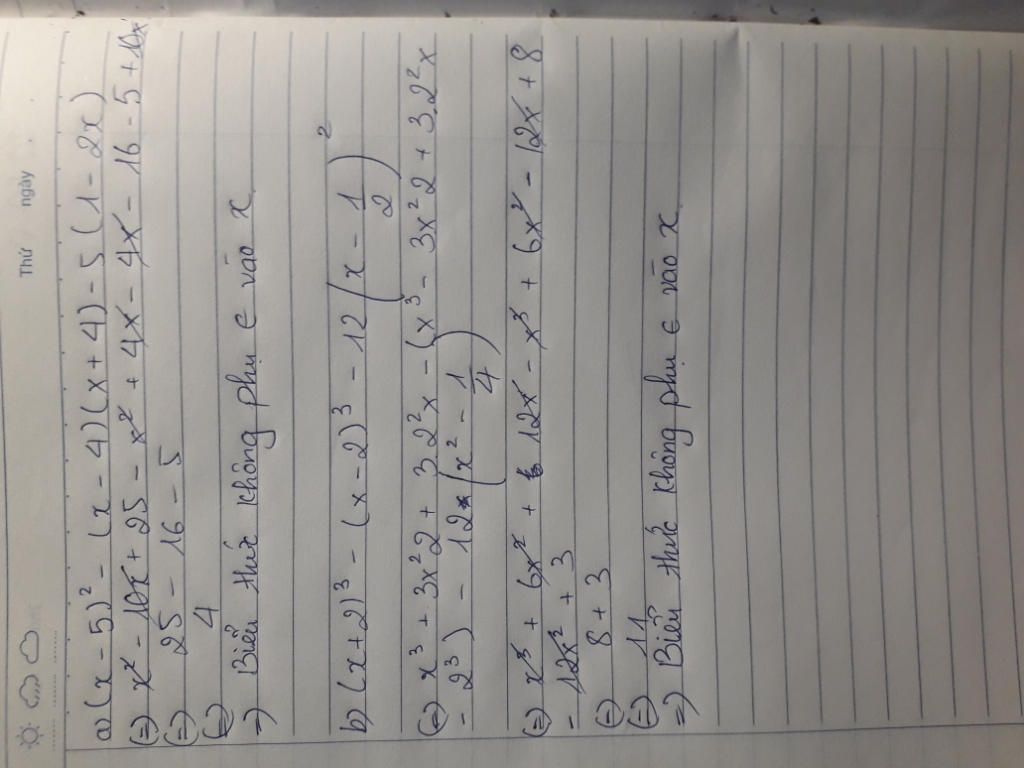 Thứ ngày
a) (x - 5)² - (x - 4)(x + 4) - 5(1 - 2x)
(=) x² - 10x + 25 - x² + 4x - 4x - 16 - 5 + 10x
(=) 25 - 16 - 5
(=) 4
=) Biểu thức không phụ ∈ vào x
b) (x + 2)³ - (x - 2)³ - 12(x - 1/2)²
(=) x³ + 3x²2 + 3.2²x - (x³ - 3x²2 + 3.2²x
- 2³) - 12(x² - 1/4)
(=) x³ + 6x² + 12x - x³ + 6x² - 12x + 8
- 12x² + 3
(=) 8 + 3
(=) 11
=) Biểu thức không phụ ∈ vào x